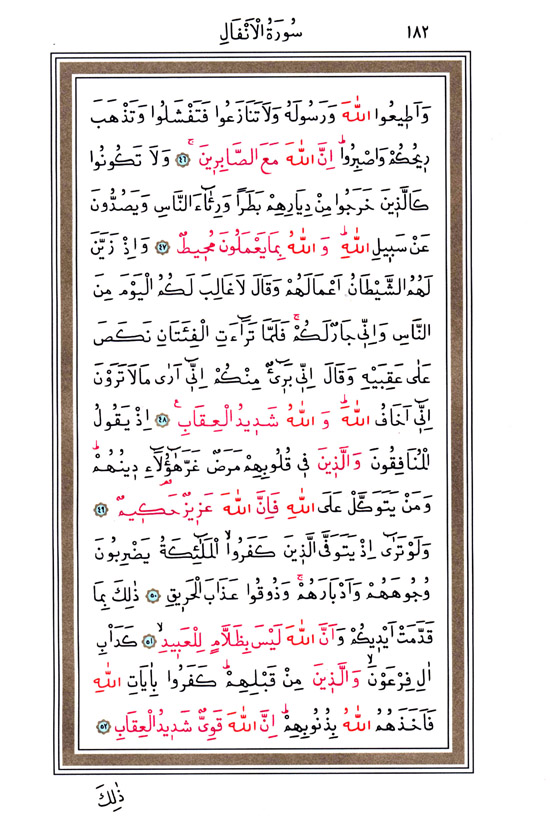 سُورَةُ الْاَنْفَالِ ١٨٢
وَاَطٖيعُوا اللّٰهَ وَرَسُولَهُ وَلَا تَنَازَعُوا فَتَفْشَلُوا وَتَذْهَبَ
رٖيحُكُمْ وَاصْبِرُواؕ اِنَّ اللّٰهَ مَعَ الصَّابِرٖينَۚ ﴿٤٦﴾ وَلَا تَكُونُوا
كَالَّذٖينَ خَرَجُوا مِنْ دِيَارِهِمْ بَطَرًا وَرِئَٓاءَ النَّاسِ وَيَصُدُّونَ
عَنْ سَبٖيلِ اللّٰهِؕ وَاللّٰهُ بِمَا يَعْمَلُونَ مُحٖيطٌ ﴿٤٧﴾ وَاِذْ زَيَّنَ
لَهُمُ الشَّيْطَانُ اَعْمَالَهُمْ وَقَالَ لَا غَالِبَ لَكُمُ الْيَوْمَ مِنَ
النَّاسِ وَاِنّٖي جَارٌ لَكُمْۚ فَلَمَّا تَرَٓاءَتِ الْفِئَتَانِ نَكَصَ
عَلٰى عَقِبَيْهِ وَقَالَ اِنّٖي بَرٖٓيءٌ مِنْكُمْ اِنّٖٓي اَرٰى مَا لَا تَرَوْنَ
اِنّٖٓي اَخَافُ اللّٰهَؕ وَاللّٰهُ شَدٖيدُ الْعِقَابِࣖ ﴿٤٨﴾ اِذْ يَقُولُ
الْمُنَافِقُونَ وَالَّذٖينَ فٖي قُلُوبِهِمْ مَرَضٌ غَرَّ هٰٓؤُ۬لَٓاءِ دٖينُهُمْؕ
وَمَنْ يَتَوَكَّلْ عَلَى اللّٰهِ فَاِنَّ اللّٰهَ عَزٖيزٌ حَكٖيمٌ ﴿٤٩﴾
وَلَوْ تَرٰٓى اِذْ يَتَوَفَّى الَّذٖينَ كَفَرُواۙ الْمَلٰٓئِكَةُ يَضْرِبُونَ
وُجُوهَهُمْ وَاَدْبَارَهُمْۚ وَذُوقُوا عَذَابَ الْحَرٖيقِ ﴿٥٠﴾ ذٰلِكَ بِمَا
قَدَّمَتْ اَيْدٖيكُمْ وَاَنَّ اللّٰهَ لَيْسَ بِظَلَّامٍ لِلْعَبٖيدِۙ ﴿٥١﴾ كَدَأْبِ
اٰلِ فِرْعَوْنَۙ وَالَّذٖينَ مِنْ قَبْلِهِمْؕ كَفَرُوا بِاٰيَاتِ اللّٰهِ
فَاَخَذَهُمُ اللّٰهُ بِذُنُوبِهِمْؕ اِنَّ اللّٰهَ قَوِيٌّ شَدٖيدُ الْعِقَابِ ﴿٥٢﴾
ذٰلِكَ